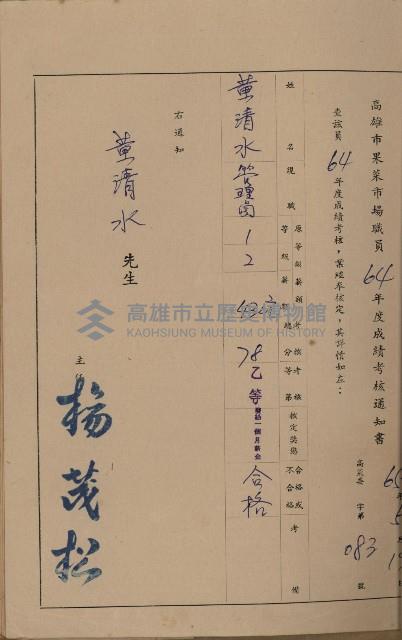 高雄市果菜市場職員64年度成績考核通知書
高菜委 字第 083 號
查該員64年度成績考核，業經奉核定，其詳情如左：
姓名 現職 原等級薪額 考核總分 考核等第 核定獎懲 合格或不合格 備考
董清水 管理員 1 2 430 78 乙等 發給一個月薪金 合格
右通知
董清水 先生
主任 楊茂松
高雄市立歷史博物館
KAOHSIUNG MUSEUM OF HISTORY